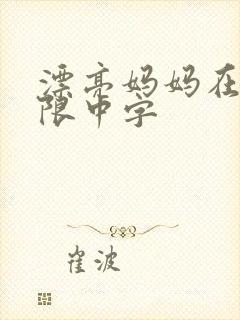 漂亮妈妈在
限中字
崔波